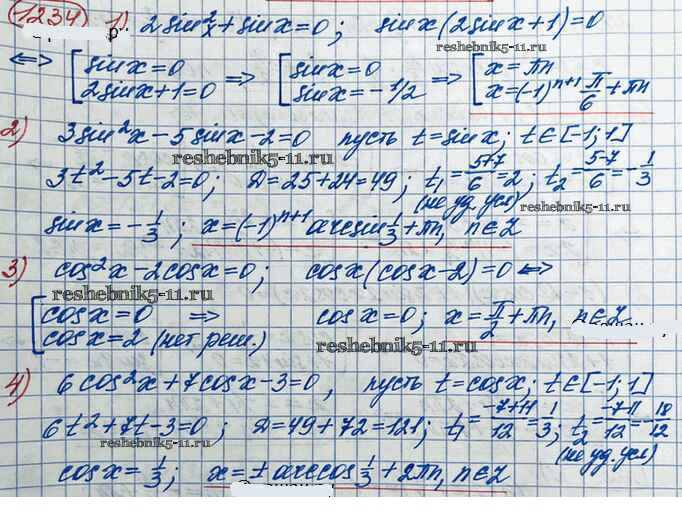 1234) 1) 2sin²x + sinx = 0; sinx(2sinx+1)=0
reshebnik5-11.ru
⟺ [ sinx=0 ⇒ [ sinx=0 ⇒ [ x=πn
2sinx+1=0 sinx=-1/2 x=(-1)ⁿ⁺¹ π/6 + πn
2) 3sin²x - 5sinx - 2 = 0 пусть t=sinx; t∈[-1;1]
reshebnik5-11.ru
3t²-5t-2=0; D=25+24=49; t₁=(5+7)/6=2; t₂=(5-7)/6=-1/3
(не уд. усл)
reshebnik5-11.ru
sinx=-1/3; x=(-1)ⁿ⁺¹ arcsin 1/3 + πn, n∈Z
3) cos²x - 2cosx = 0; cosx(cosx-2)=0 ⟺
reshebnik5-11.ru
[ cosx=0 ⇒ cosx=0; x=π/2+πn, n∈Z
cosx=2 (нет реш.)
reshebnik5-11.ru
4) 6cos²x+7cosx-3=0, пусть t=cosx; t∈[-1;1]
6t²+7t-3=0; D=49+72=121; t₁=(-7+11)/12=1/3; t₂=(-7-11)/12=-18/12
reshebnik5-11.ru
(не уд. усл)
cosx=1/3; x=±arccos 1/3 + 2πn, n∈Z